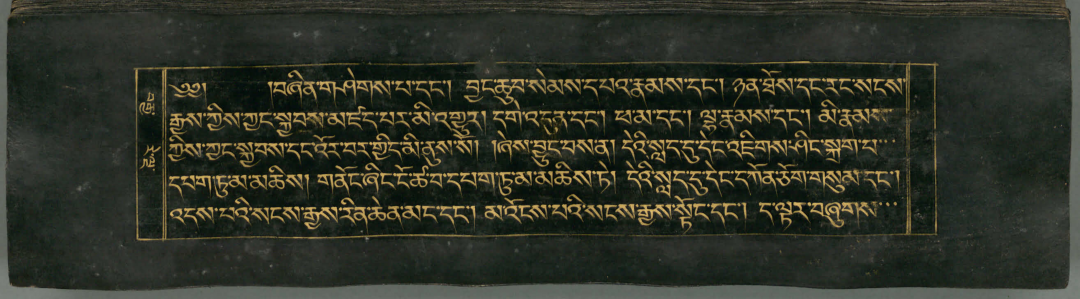 ༄༅། །བཞིན་གཤེགས་པ་དང་། བྱང་ཆུབ་སེམས་དཔའ་རྣམས་དང་། ཉན་ཐོས་དང་རང་སངས་
རྒྱས་ཀྱིས་ཀྱང་སྐྱབས་མཛད་པར་མི་འགྱུར། དགེ་འདུན་དང་། ཕ་མ་དང་། ལྷ་རྣམས་དང་། མི་རྣམས་
ཀྱིས་ཀྱང་སྐྱབས་དང་འོར་བར་གྱིང་མི་ནུས་སོ། །ཞེས་བྱུང་བས་ན། དེའི་སླད་དུ་དེང་འཇིགས་ཤིང་སྐྲག་པ་
དཔག་ཏུ་མ་མཆིས། གནོང་ཞིང་ངོ་ཚ་བ་དཔག་ཏུ་མ་མཆིས་ཏེ། དེའི་སླད་དུ་དེང་དཀོན་ཅོག་གསུམ་དང་།
འདས་པའི་སངས་རྒྱས་རིན་ཆེན་མང་དང་། མ་འོངས་པའི་སངས་རྒྱས་སྟོང་དང་། ད་ལྟར་བཞུགས་